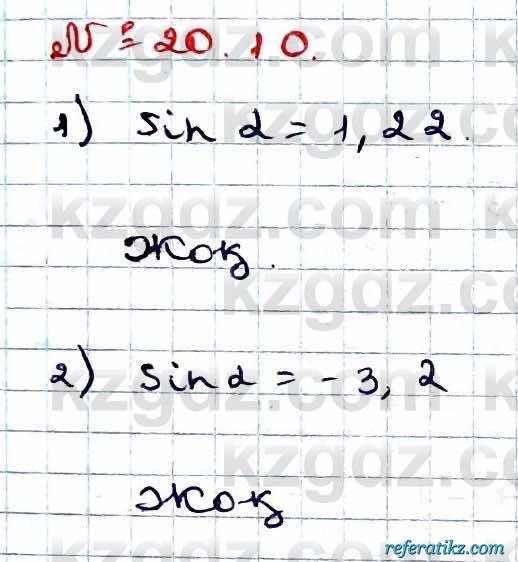 № 20.10.
1) sin α = 1,22.
жоқ.
2) sin α = -3,2
жоқ
kzgdz.com
referatikz.com